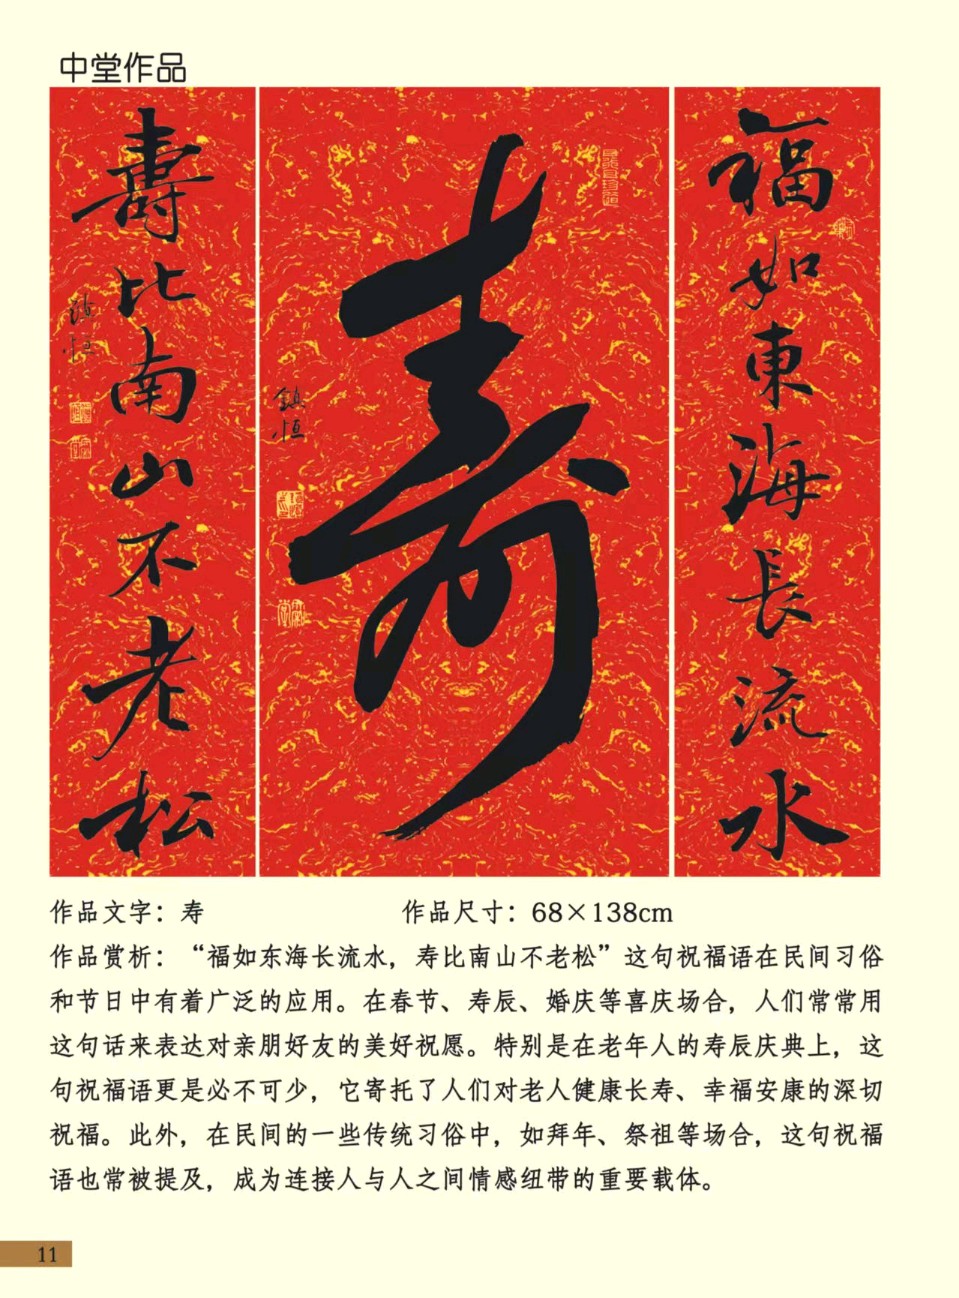 中堂作品
福如東海長流水
壽
鎮恒
壽比南山不老松
鎮恒
作品文字：寿 作品尺寸：68×138cm
作品赏析：“福如东海长流水，寿比南山不老松”这句祝福语在民间习俗
和节日中有着广泛的应用。在春节、寿辰、婚庆等喜庆场合，人们常常用
这句话来表达对亲朋好友的美好祝愿。特别是在老年人的寿辰庆典上，这
句祝福语更是必不可少，它寄托了人们对老人健康长寿、幸福安康的深切
祝福。此外，在民间的一些传统习俗中，如拜年、祭祖等场合，这句祝福
语也常被提及，成为连接人与人之间情感纽带的重要载体。
11